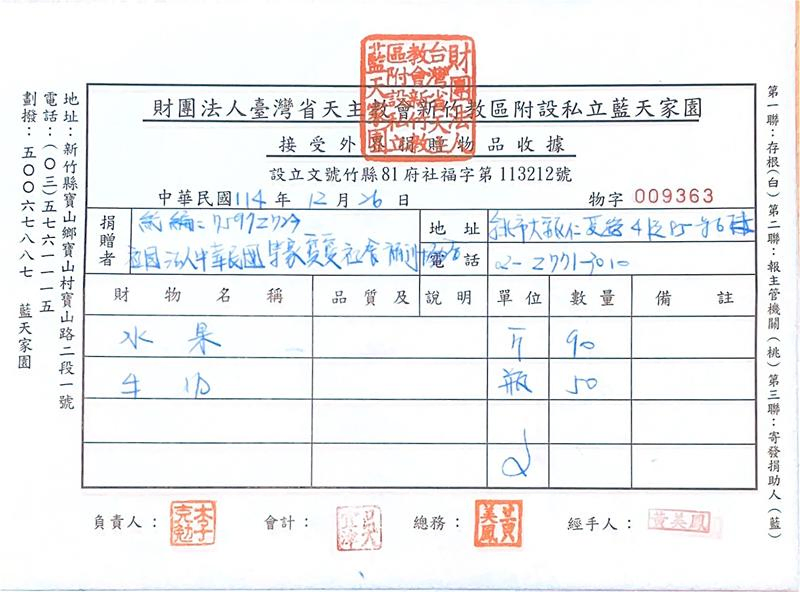 財團法人台灣省天主教會新竹教區附設私立藍天家園
財團法人臺灣省天主教會新竹教區附設私立藍天家園
接受外界捐贈物品收據
設立文號竹縣81府社福字第113212號
中華民國114年12月26日
物字 009363
捐贈者
統編:
財團法人中華民國
社會福利
地址
台北市大
仁愛路4段85號6樓
電話
02-2771-3010
財物名稱 品質及說明 單位 數量 備註
水果 斤 90
牛奶 瓶 50
負責人: 會計: 總務: 黃美鳳 經手人: 黃美鳳
地址:新竹縣寶山鄉寶山村寶山路二段一號
電話:(〇三)五七六一一一五
劃撥:五〇〇六七八八七 藍天家園
第一聯:存根(白)第二聯:報主管機關(桃)第三聯:寄發捐助人(藍)